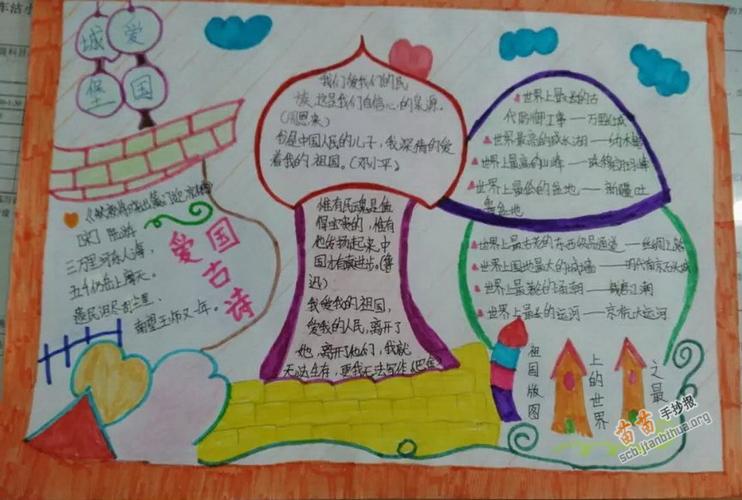 爱国
城堡
我们爱我们的民
族,这是我们自信心的泉源。
(周恩来)
我是中国人民的儿子,我深情的爱
着我的祖国。(邓小平)
惟有民魂是值
得宝贵的,惟有
他发扬起来,中
国才有真进步。(鲁
迅)
我爱我的祖国,
爱我的人民,离开了
她,离开了他们,我就
无法生存,更我无法写作(巴金)
世界上最长的古
代防御工事——万里长城
世界最高的咸水湖——纳木错
世界上最高的山峰——珠穆朗玛峰
世界上最低的盆地——新疆吐
鲁番盆地
世界上最古老的东西
——丝绸之路
世界上最大的城墙——明代南京石头城
世界上最
——钱塘江潮
世界上最长的运河——京杭大运河
[宋]
三万里河东入海,
五千仞岳上摩天。
遗民泪尽胡尘里,
南望王师又一年。
爱国古诗
祖国版图
上的世界
之最
苗苗手抄报
scb.jianbihua.org